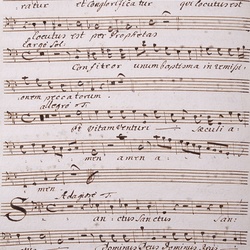 ratur et conglorificatur qui locutus est
locutus est per Prophetas
largo Sol:
Confiteor unum baptisma in remiss:
onem peccatorum.
allegro T.
et vitam venturi Sæculi a
men amen a
men
Adagio T.
Sanctus Sanctus San:
ctus Dominus Deus Dominus Deus